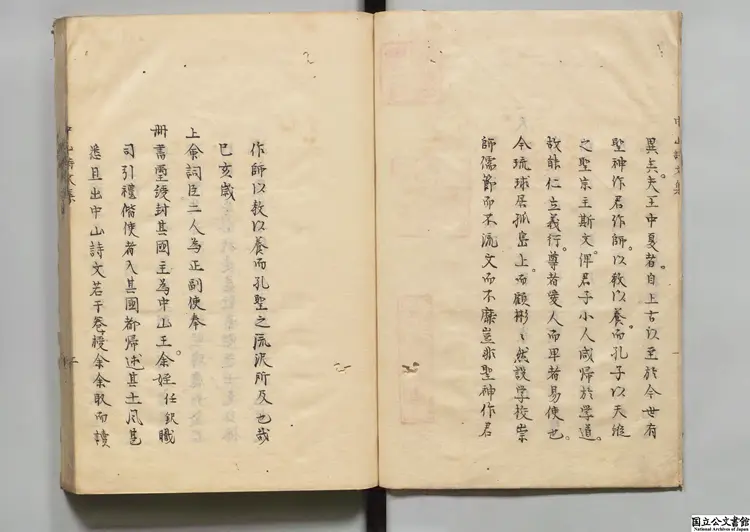 異矣。夫王中夏者。自上古以至於今世有
聖神作君作師。以教以養。而孔子以天縱
之聖宗主斯文。俾君子小人咸歸於学道。
故能仁立義行。尊者愛人而卑者易使也。
今琉球居孤島上。而顧彬〻然設学校崇
師儒節而不流文而不靡豈非聖神作君
作師以教以養而孔聖之流沢所及也哉
巳亥歲
上僉詞臣二人為正副使奉
冊書璽綬封其國主為中山王。余姪任釴職
司引禮偕使者入其國都帰述其土風甚
悉且出中山詩文若干卷授余余取而讀
中山詩文集
国立公文書館
National Archives of Japan